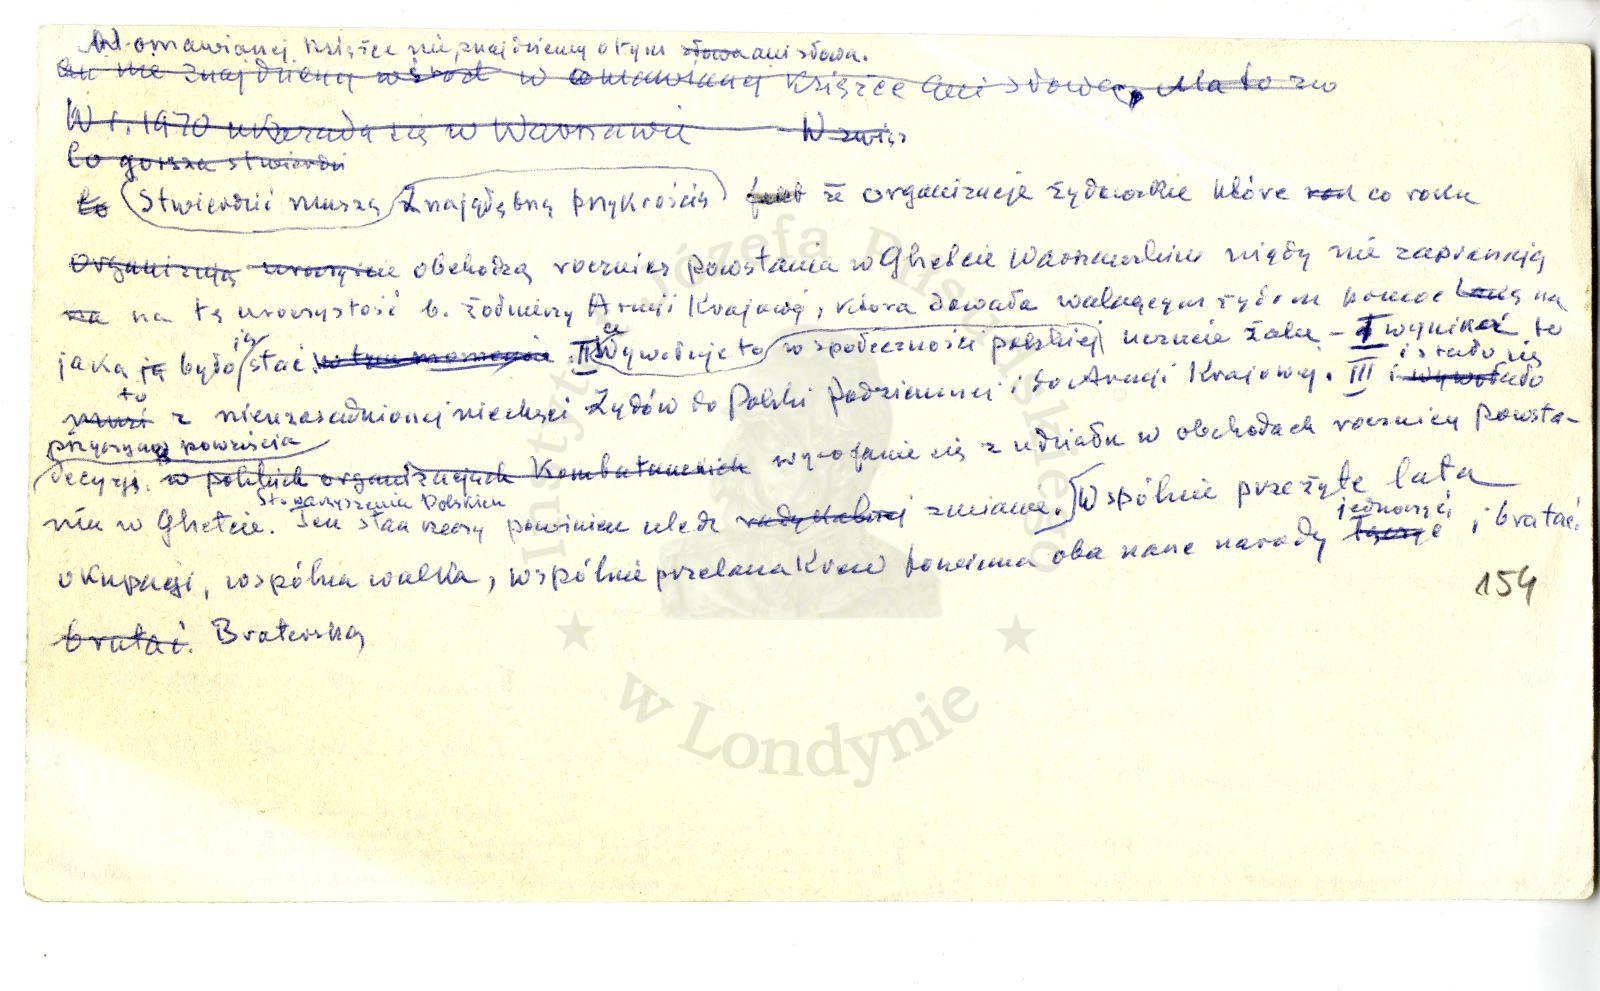 W omawianej książce nie znajdziemy o tym słowa ani słowa.
ani nie znajdziemy wśród w omawianej książce ani słowa, Mało zw
W r. 1970 ukazała się w Warszawie W związ
Co gorsza stwierdzi
Co Stwierdzić muszę z największą przykrością fakt że organizacje żydowskie które rok co roku
organizują uroczyście obchodzą rocznicę powstania w Ghetcie Warszawskim nigdy nie zapraszają
na na tę uroczystość b. żołnierzy Armii Krajowej, która dawała walczącym żydom pomoc taką na
jaką ją było ją stać w tym momencie. II Wywołuje to w społeczności polskiej uczucie żalu – I wynikać to
musi to z nieuzasadnionej niechęci Żydów do Polski Podziemnej i do Armii Krajowej. III i wywołało i stało się
przyczyną powzięcia
decyzję w polskich organizacjach Kombatanckich wycofanie się z udziału w obchodach rocznicy Powsta-
Stowarzyszenia Polskich
nia w Ghetcie. Ten stan rzeczy powinien ulec radykalnej zmianie. Wspólnie przeżyte lata
okupacji, wspólna walka, wspólnie przelana Krew powinna oba nasze narody łączyć jednoczyć i bratać.
bratać. Braterską
154
Instytut Józefa Piłsudskiego
w Londynie